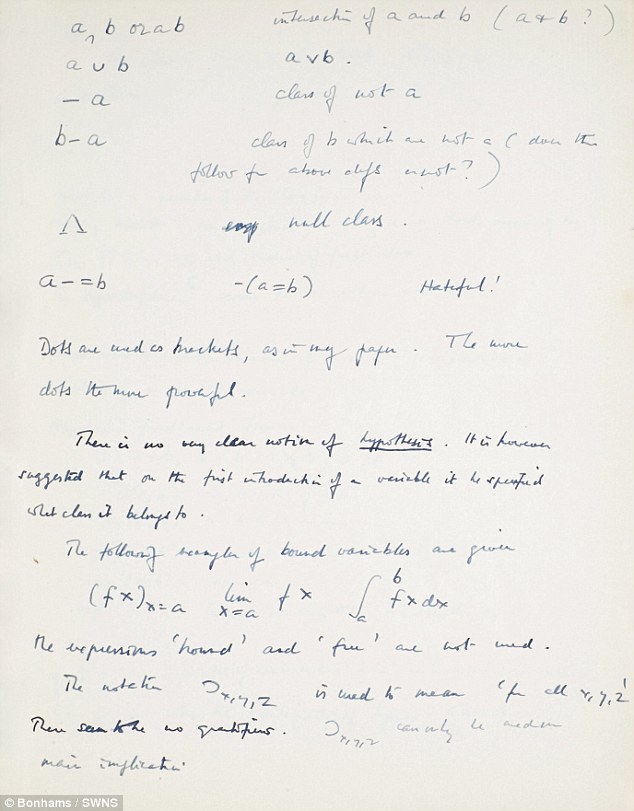 a ∩ b or ab intersection of a and b (a & b?)
a ∪ b a v b.
– a class of not a
b – a class of b which are not a (does this
follow fr above defs or not?)
Λ null class.
a – = b –(a = b) Hateful!
Dots are used as brackets, as in my paper. The more
dots the more powerful.
There is no very clear notion of hypothesis. It is however
suggested that on the first introduction of a variable it be specified
what class it belongs to.
The following examples of bound variables are given
(fx)x=a lim x=a fx ∫ₐᵇ fx dx
the expressions 'bound' and 'free' are not used.
The notation ⊃x,y,z is used to mean 'for all x,y,z'
There seem to be no quantifiers. ⊃x,y,z can only be used in
main implication
© Bonhams / SWNS